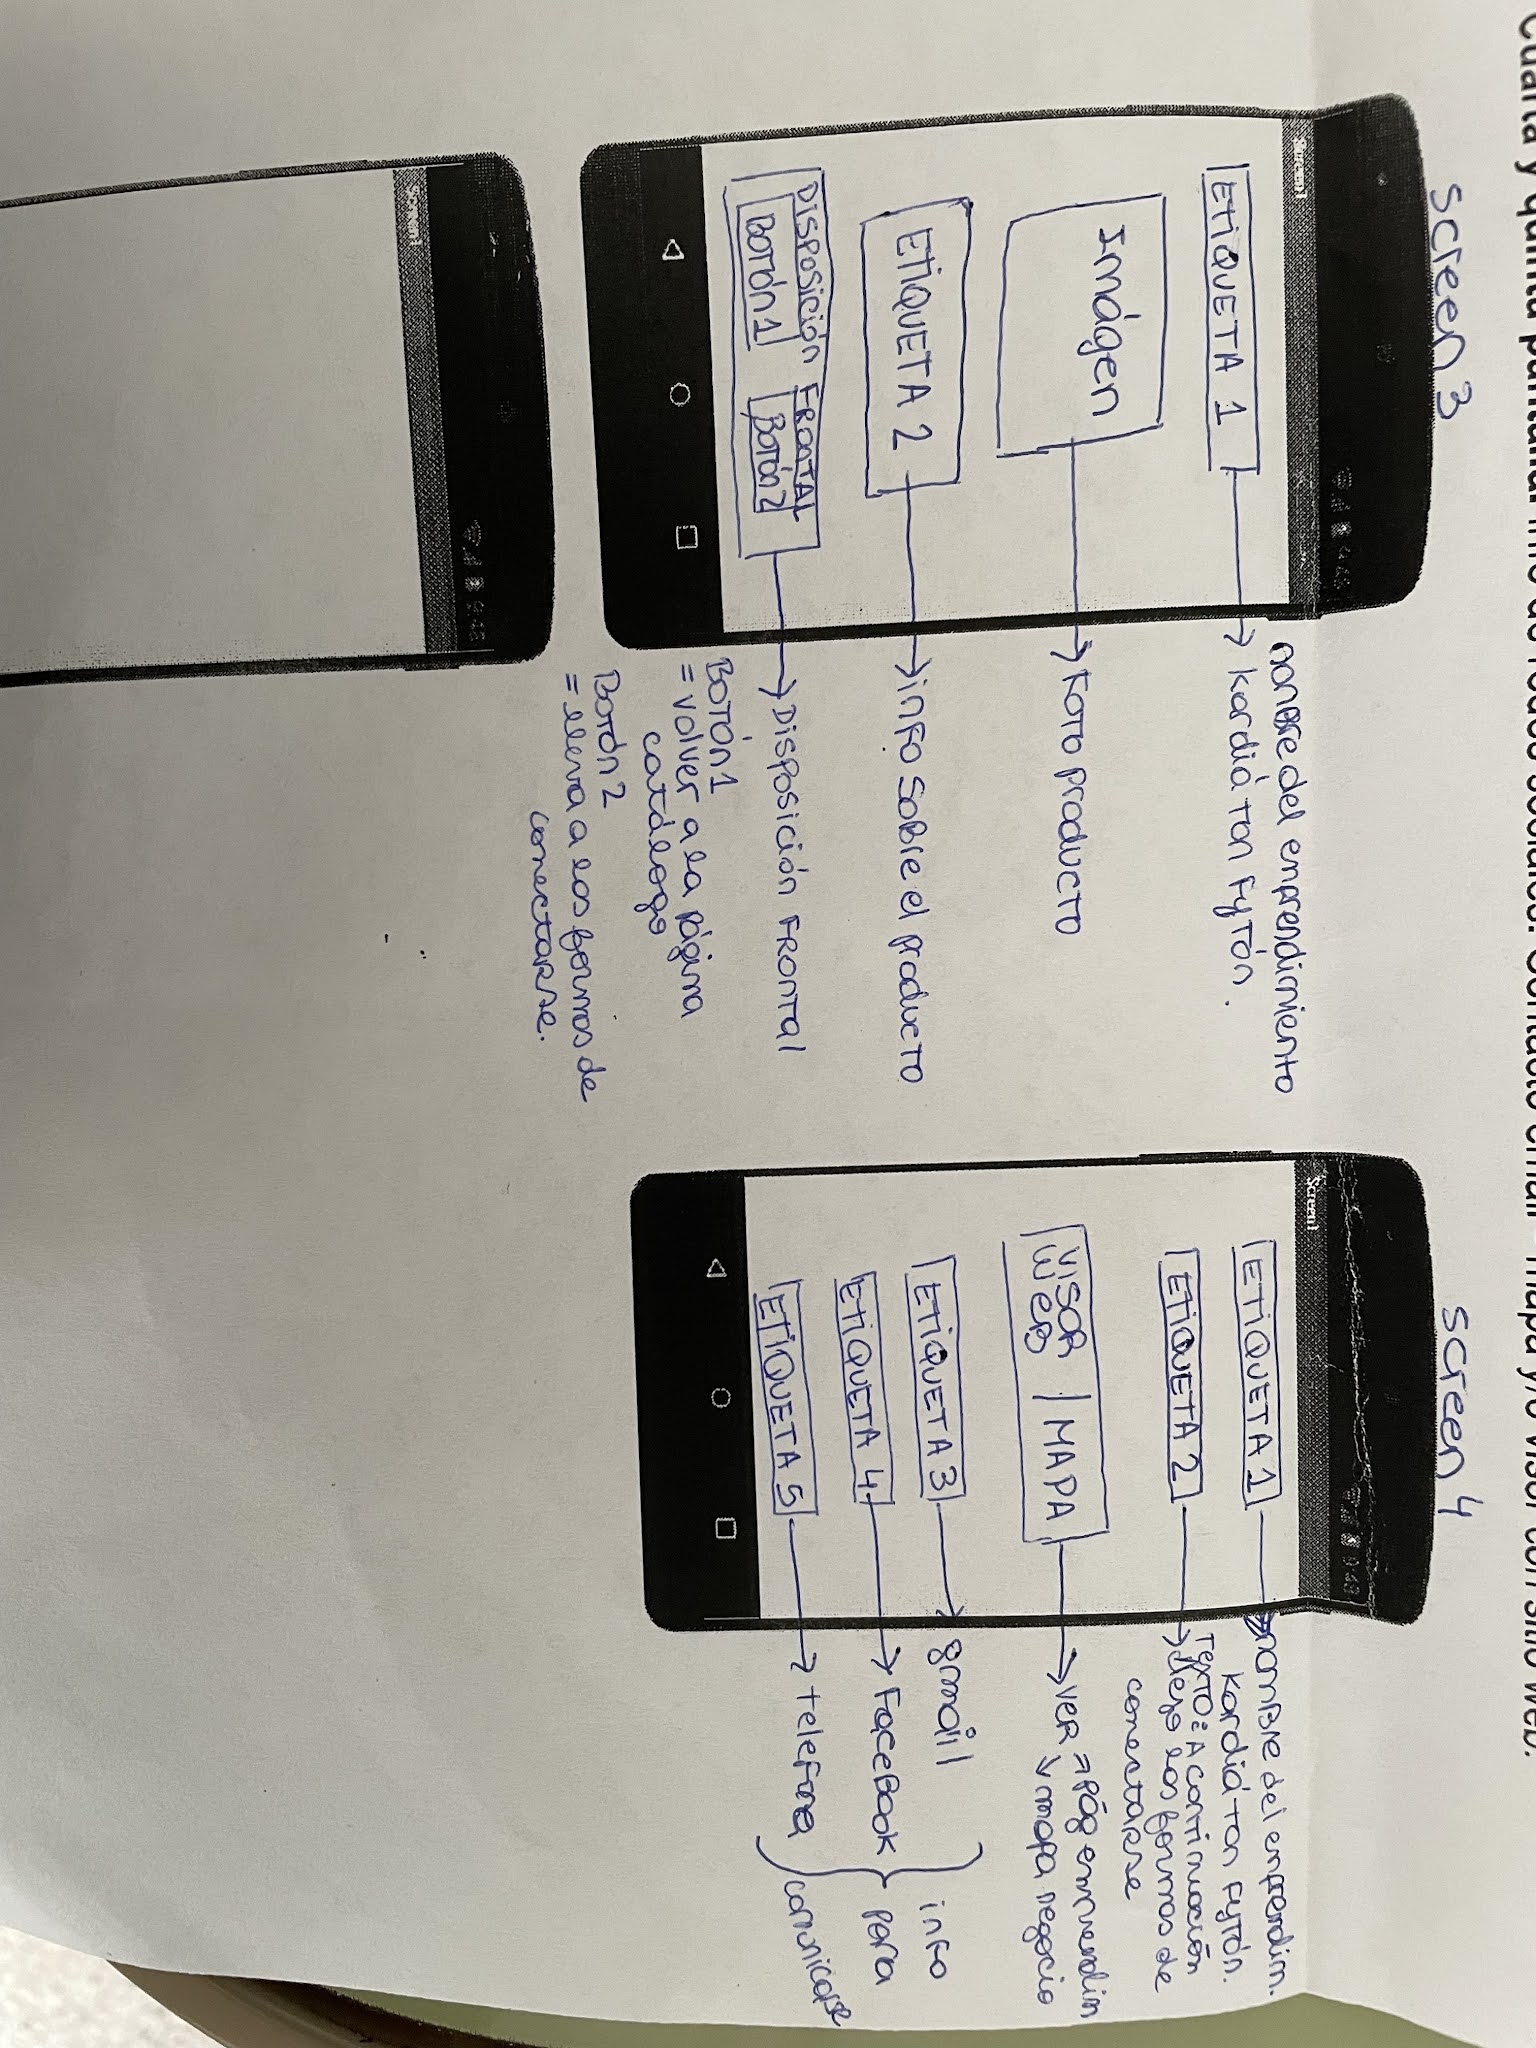 Cuarta y quinta pantalla:
mapa y/o visor con sitio web.
screen 3
Screen1
ETIQUETA 1
nomBre del emprendimiento
Kardiá Ton Fytón.
Imágen
Foto producto
ETIQUETA 2
info soBre el producto
Disposición FRONTAL
Botón1
Botón2
Disposición Frontal
Botón1
= volver a la página
catálogo
Botón 2
= lleva a las formas de
conectarse.
screen 4
Screen1
9:48
ETIQUETA 1
nomBre del emprendim.
Kardiá Ton Fytón.
ETIQUETA 2
Texto: A continuación
dejo las formas de
conectarse
VISOR | MAPA
WEB
VER → pág emprendim
↘ mapa negocio
ETIQUETA 3
gmail
ETIQUETA 4
FaceBook
ETIQUETA 5
info
para
comunicarse
Screen1
9:48